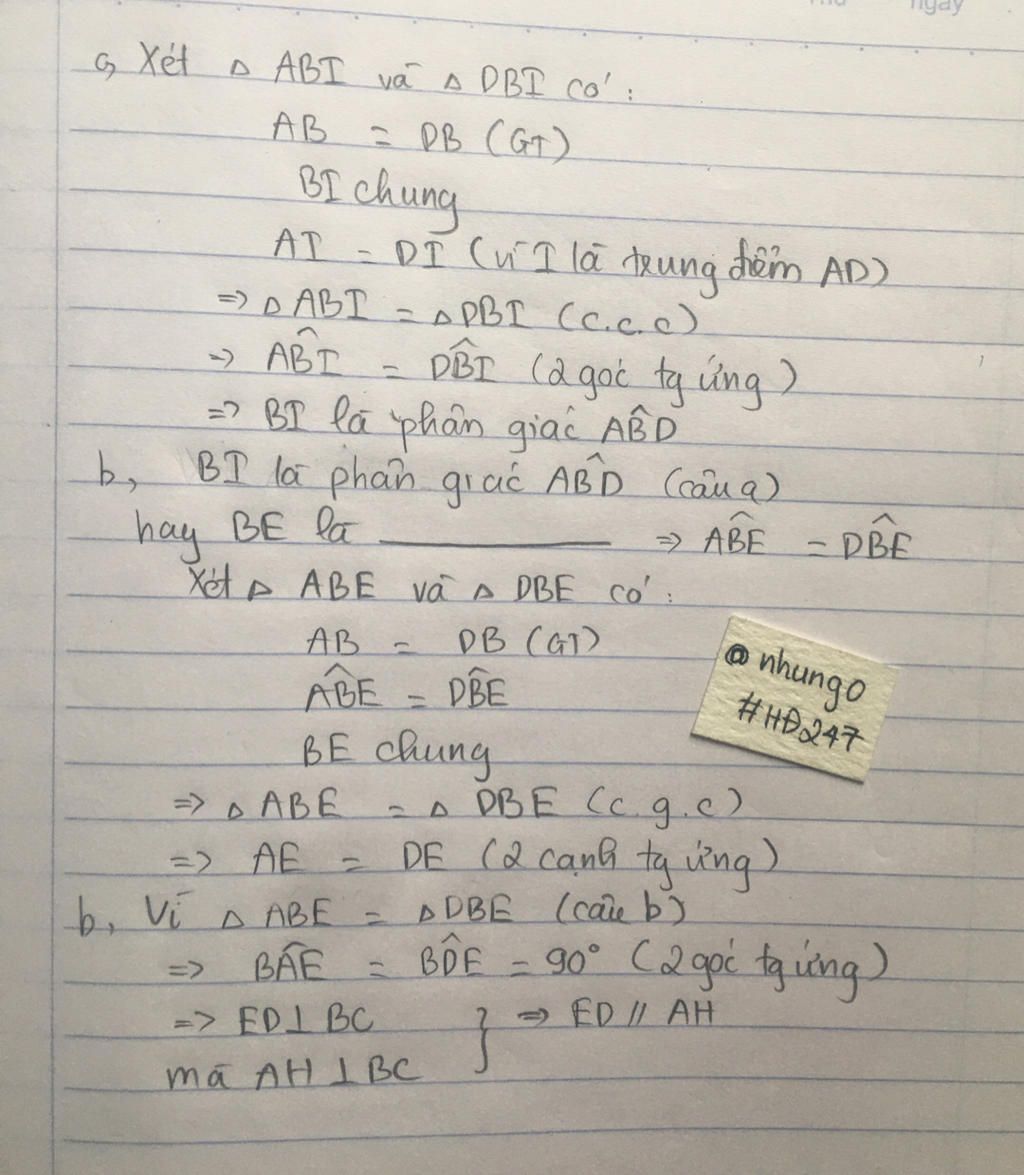 ngày
a, Xét △ ABI và △ DBI có:
AB = DB (GT)
BI chung
AI = DI (vì I là trung điểm AD)
=> △ ABI = △ DBI (c.c.c)
=> AB̂I = DB̂I (2 góc tg ứng)
=> BI là phân giác AB̂D
b, BI là phân giác AB̂D (câu a)
hay BE là ________ => AB̂E = DB̂E
Xét △ ABE và △ DBE có:
AB = DB (GT)
AB̂E = DB̂E
BE chung
=> △ ABE = △ DBE (c.g.c)
=> AE = DE (2 cạnh tg ứng)
b, Vì △ ABE = △ DBE (câu b)
=> BÂE = BD̂E = 90° (2 góc tg ứng)
=> ED ⊥ BC } => ED // AH
mà AH ⊥ BC
@nhung0
#HĐ247